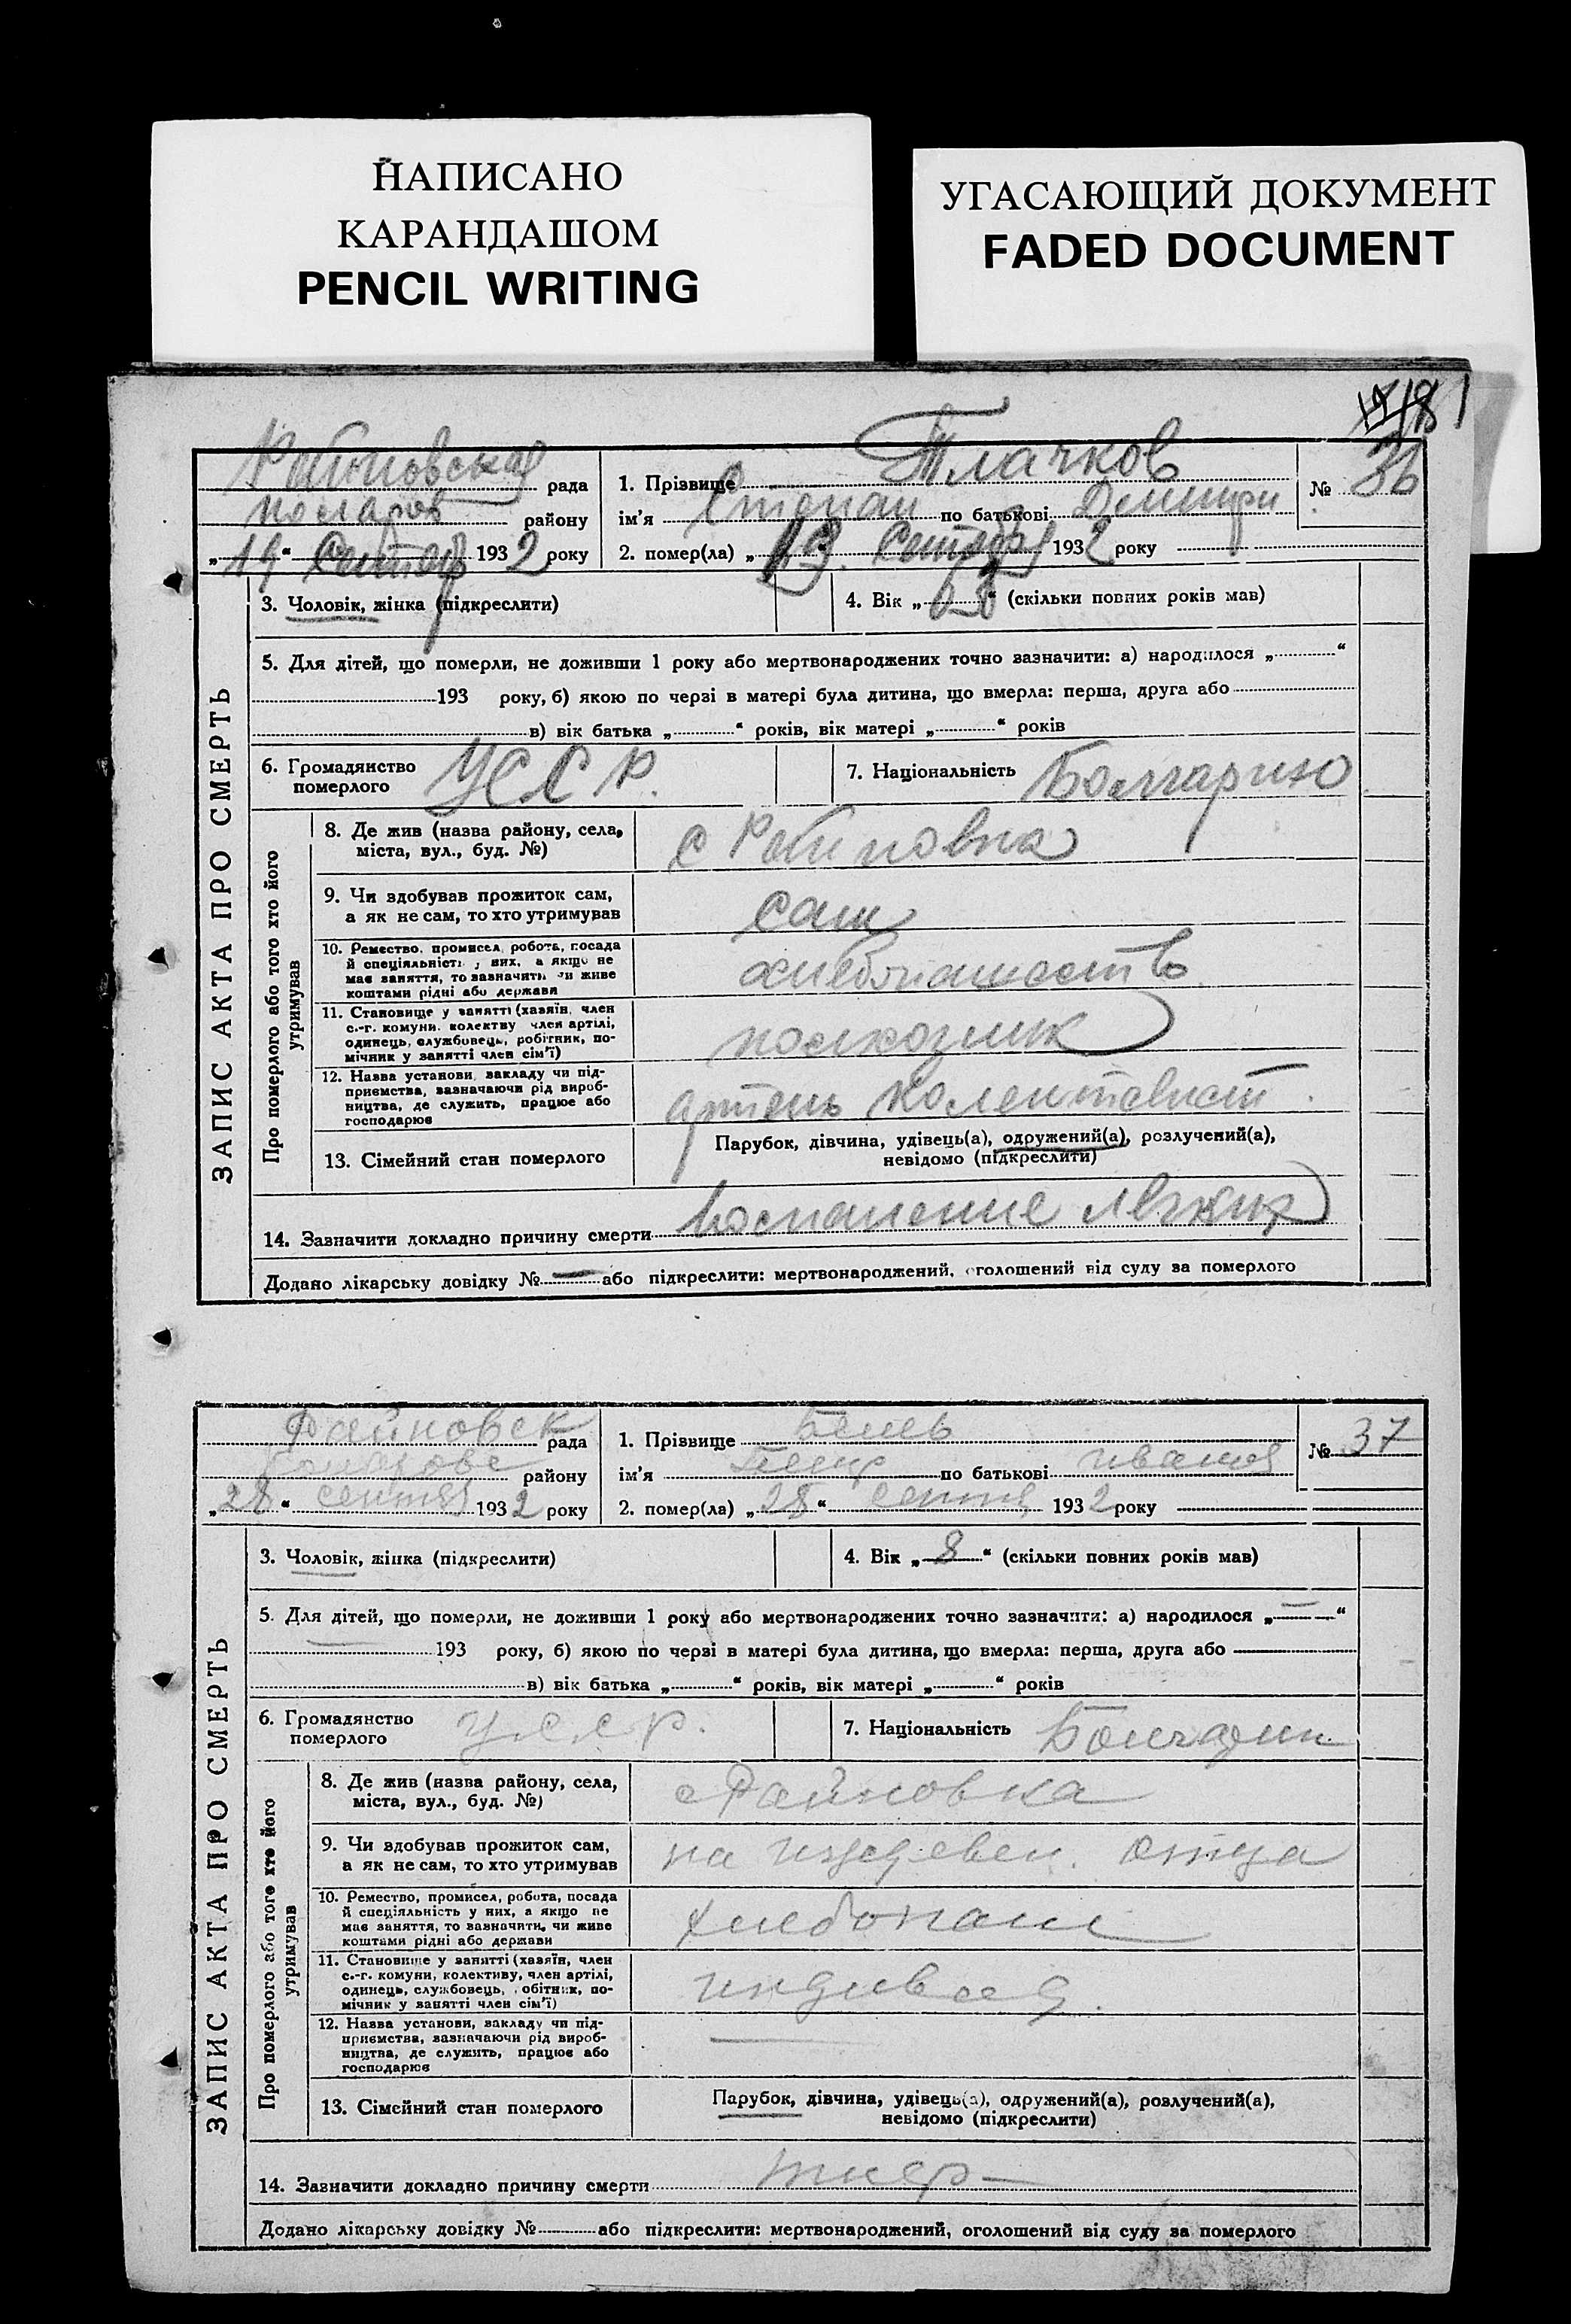 НАПИСАНО
КАРАНДАШОМ
PENCIL WRITING
УГАСАЮЩИЙ ДОКУМЕНТ
FADED DOCUMENT
рада
району
„19“ 1932 року
1. Прізвище Тлачков
ім'я Степан по батькові Дмитри
2. помер(ла) „19. 1932 року
№ 36
3. Чоловік, жінка (підкреслити)
4. Вік „ “ (скільки повних років мав)
5. Для дітей, що померли, не доживши 1 року або мертвонароджених точно зазначити: а) народилося „ “
193 року, б) якою по черзі в матері була дитина, що вмерла: перша, друга або
в) вік батька „ “ років, вік матері „ “ років
6. Громадянство
померлого
УССР.
7. Національність
ЗАПИС АКТА ПРО СМЕРТЬ
Про померлого або того хто його
утримував
8. Де жив (назва району, села,
міста, вул., буд. №)
с
9. Чи здобував прожиток сам,
а як не сам, то хто утримував
сам
10. Ремество, промисел, робота, посада
й спеціяльність у них, а якщо не
має заняття, то зазначити чи живе
коштами рідні або держави
11. Становище у занятті (хазяїн, член
с.-г. комуни, колективу член артілі,
одинець, службовець, робітник, по-
мічник у занятті член сім'ї)
колхозник
12. Назва установи, закладу чи під-
приємства, зазначаючи рід вироб-
ництва, де служить, працює або
господарює
артель
13. Сімейний стан померлого
Парубок, дівчина, удівець(а), одружений(а), розлучений(а),
невідомо (підкреслити)
14. Зазначити докладно причину смерти Воспаление легких
Додано лікарську довідку № — або підкреслити: мертвонароджений, оголошений від суду за померлого
Райновск рада
району
„28“ 1932 року
1. Прізвище
ім'я Петр по батькові Иванов
2. помер(ла) „28“ 1932 року
№ 37
3. Чоловік, жінка (підкреслити)
4. Вік „8“ (скільки повних років мав)
5. Для дітей, що померли, не доживши 1 року або мертвонароджених точно зазначити: а) народилося „ “
193 року, б) якою по черзі в матері була дитина, що вмерла: перша, друга або
в) вік батька „ “ років, вік матері „ “ років
6. Громадянство
померлого
УССР.
7. Національність Болгарин
ЗАПИС АКТА ПРО СМЕРТЬ
Про померлого або того хто його
утримував
8. Де жив (назва району, села,
міста, вул., буд. №)
с Райновка
9. Чи здобував прожиток сам,
а як не сам, то хто утримував
на отца
10. Ремество, промисел, робота, посада
й спеціяльність у них, а якщо не
має заняття, то зазначити, чи живе
коштами рідні або держави
хлебопаш
11. Становище у занятті (хазяїн, член
с.-г. комуни, колективу, член артілі,
одинець, службовець, робітник, по-
мічник у занятті член сім'ї)
12. Назва установи, закладу чи під-
приємства, зазначаючи рід вироб-
ництва, де служить, працює або
господарює
13. Сімейний стан померлого
Парубок, дівчина, удівець(а), одружений(а), розлучений(а),
невідомо (підкреслити)
14. Зазначити докладно причину смерти
Додано лікарську довідку № або підкреслити: мертвонароджений, оголошений від суду за померлого